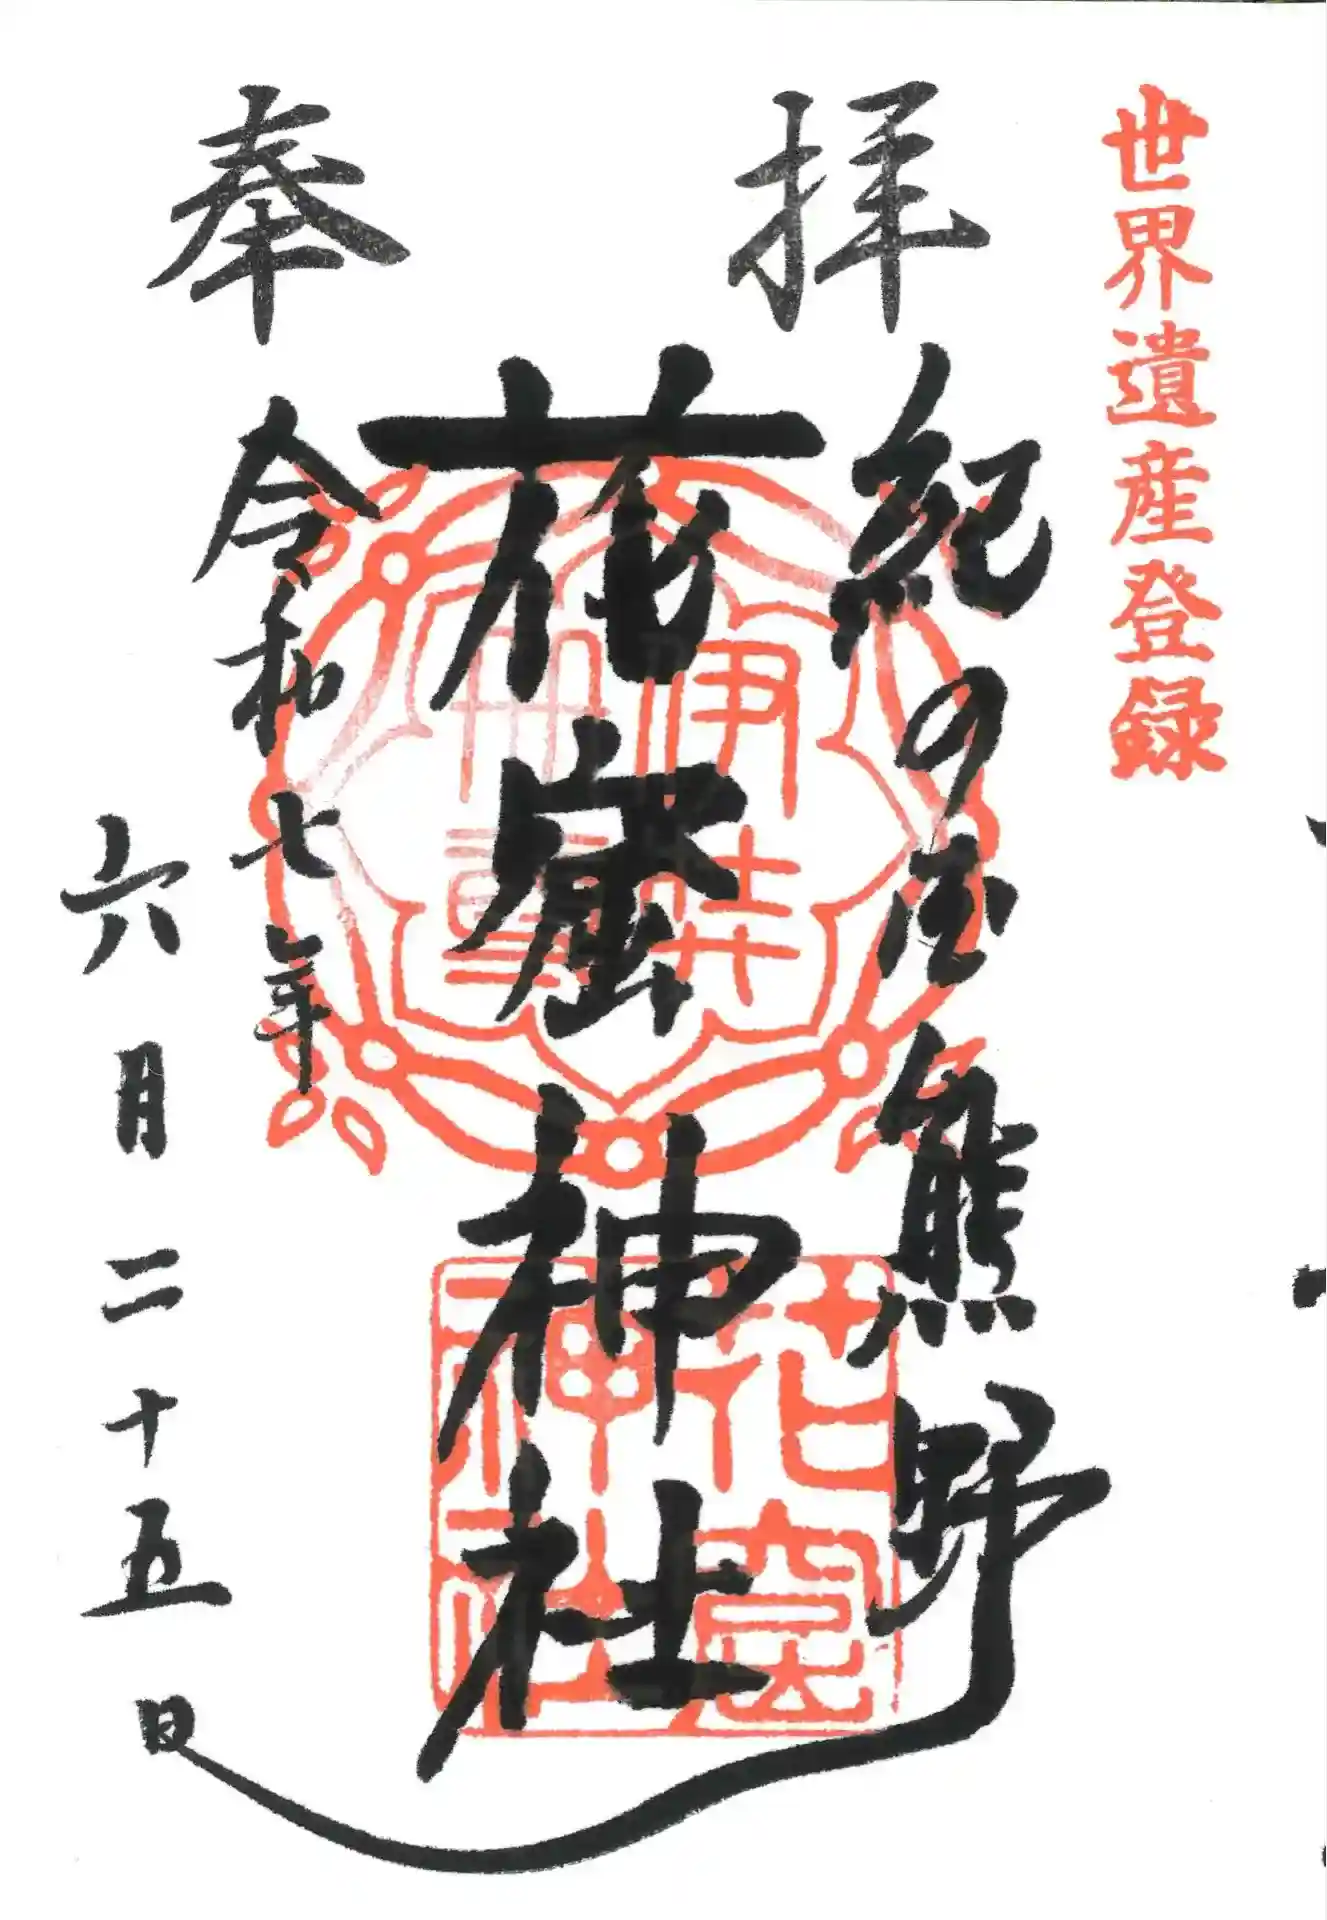 世界遺産登録
奉拝
紀の国熊野
花窟神社
令和七年
六月二十五日
伊弉
冊尊
花窟
神社